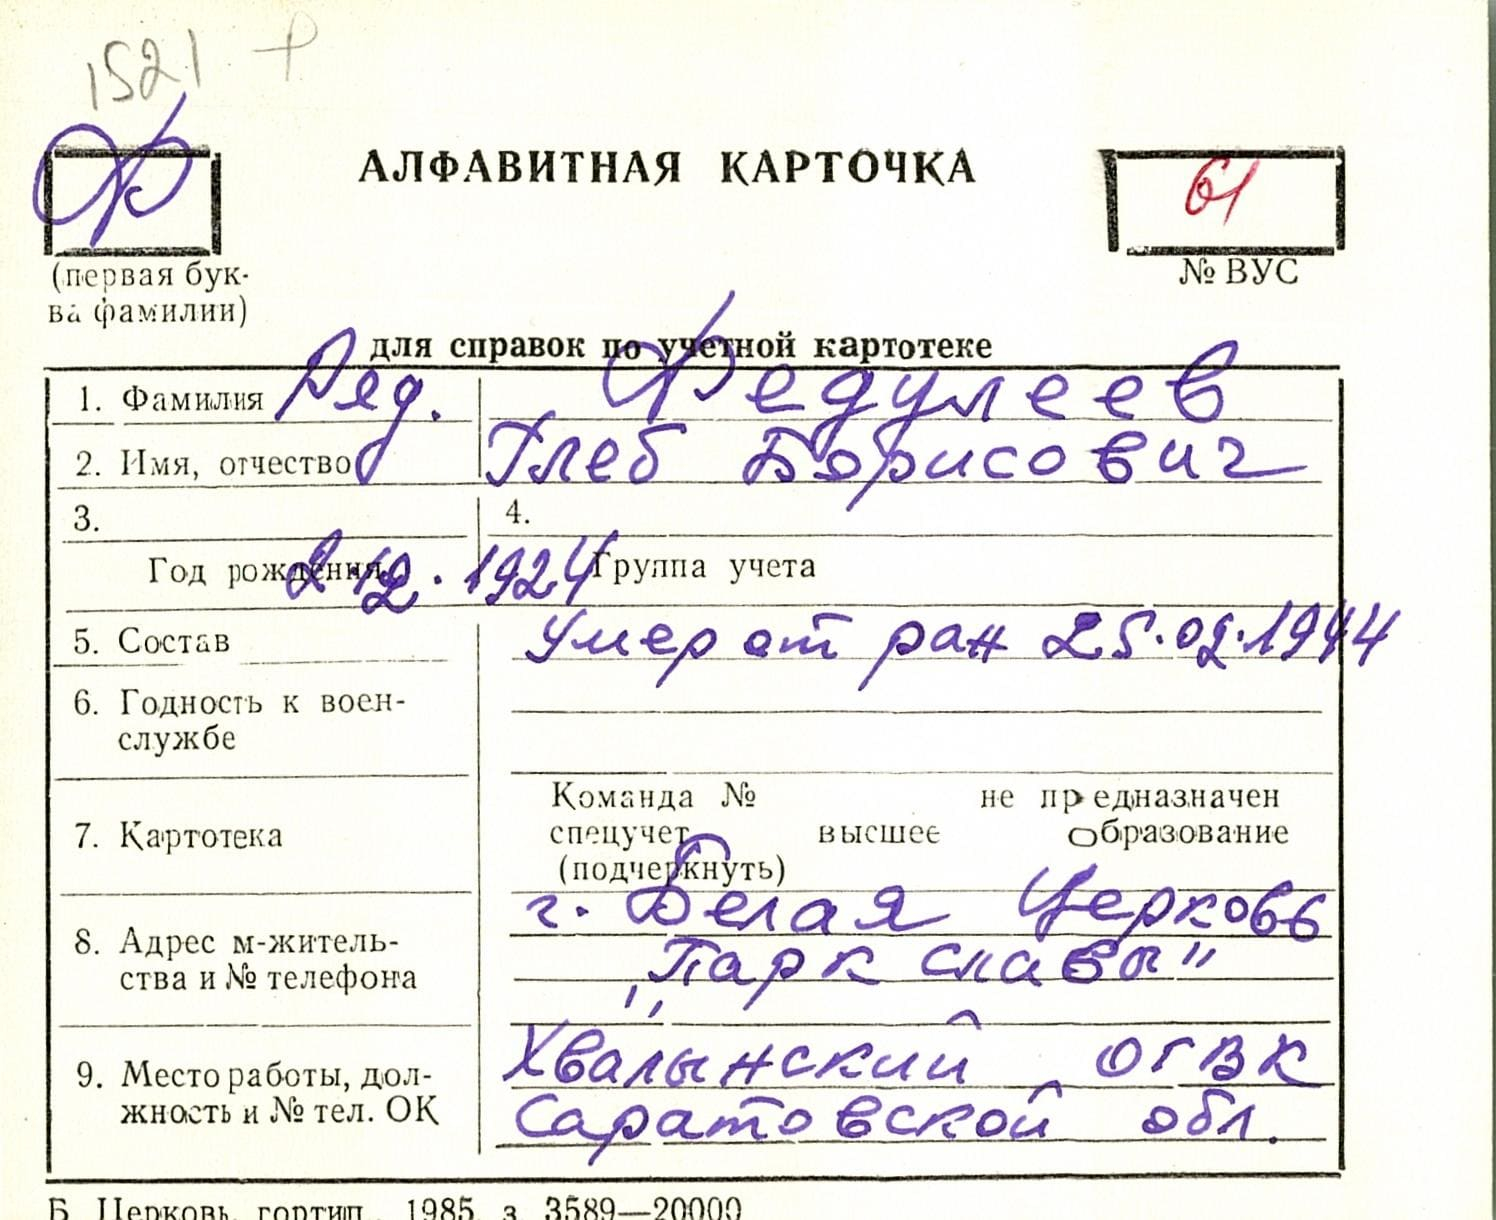 1521 +
Ф
АЛФАВИТНАЯ КАРТОЧКА
61
(первая бук-
ва фамилии)
№ ВУС
для справок по учетной картотеке
1. Фамилия Ряд. Федулеев
2. Имя, отчество Глеб Борисович
3.
4.
Год рождения 2.12.1924 Группа учета
5. Состав Умер от ран 25.02.1944
6. Годность к воен-
службе
Команда № не предназначен
7. Картотека спецучет высшее образование
(подчеркнуть)
г. Белая Церковь
8. Адрес м-житель- „Парк славы"
ства и № телефона
Хвалынский ОГВК
9. Место работы, дол-
жность и № тел. ОК Саратовской обл.
Б. Церковь, гортип., 1985, з. 3589—20000